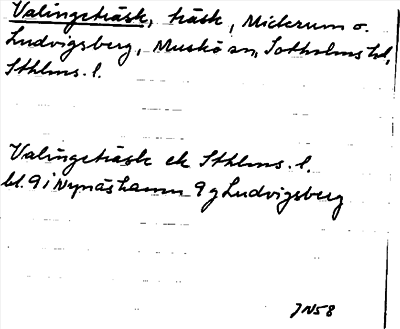 Valingeträsk, träsk, Micterum o.
Ludvigsberg, Muskö sn, Sotholms hd,
Sthlms. l.
Valingeträsk ek Sthlms. l.
bl. 9 i Nynäshamn 9 g Ludvigsberg
JN58